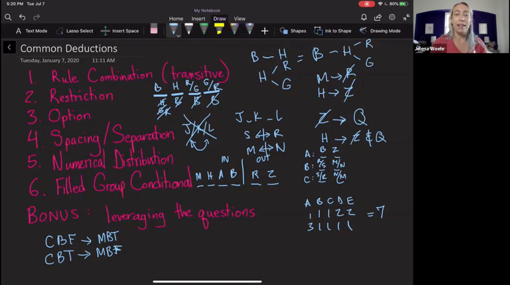 9:20 PM Tue Jul 7
80%
My Notebook
Home Insert Draw View
Text Mode Lasso Select Insert Space
Shapes Ink to Shape Drawing Mode
Common Deductions
Tuesday, January 7, 2020 11:11 AM
1 Rule Combination (transitive)
2. Restriction
3. Option
4 Spacing/Separation
5 Numerical Distribution
6. Filled Group Conditional
BONUS: leveraging the questions
CBF → MBT
CBT → MBF
B H R/G G/R
J K L
IN
M H A B
OUT
R Z
B - H R G = B - H R G
H R G
J - K - L
S ↔ R
M ↔ N
M → R
H → Z
Z → Q
H → Z & Q
A: B Z
B: R/S M/N
C: S/R N/M
A B C D E
1 1 1 2 2 = 7
3 1 1 1 1